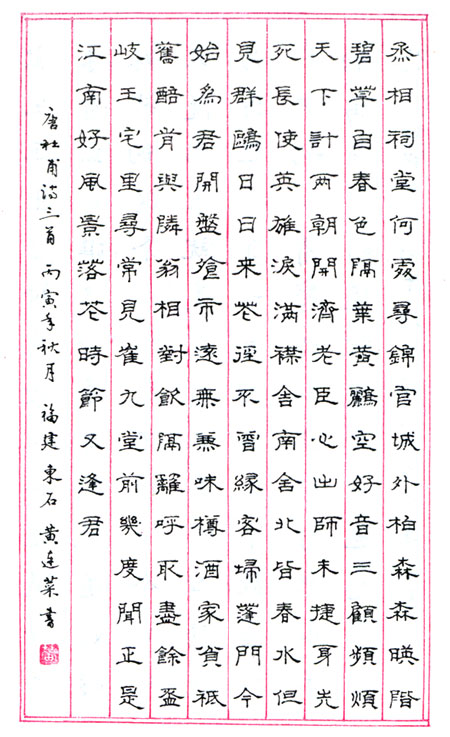 丞相祠堂何處尋錦官城外柏森森暎階
碧草自春色隔葉黃鸝空好音三顧頻煩
天下計兩朝開濟老臣心出師未捷身先
死長使英雄淚滿襟舍南舍北皆春水但
見群鷗日日來花徑不曾緣客埽蓬門今
始為君開盤飧市遠無兼味樽酒家貧祗
舊醅肯與隣翁相對飲隔籬呼取盡餘盃
岐王宅里尋常見崔九堂前幾度聞正是
江南好風景落花時節又逢君
唐杜甫詩三首 丙寅年秋月 福建東石 黃書